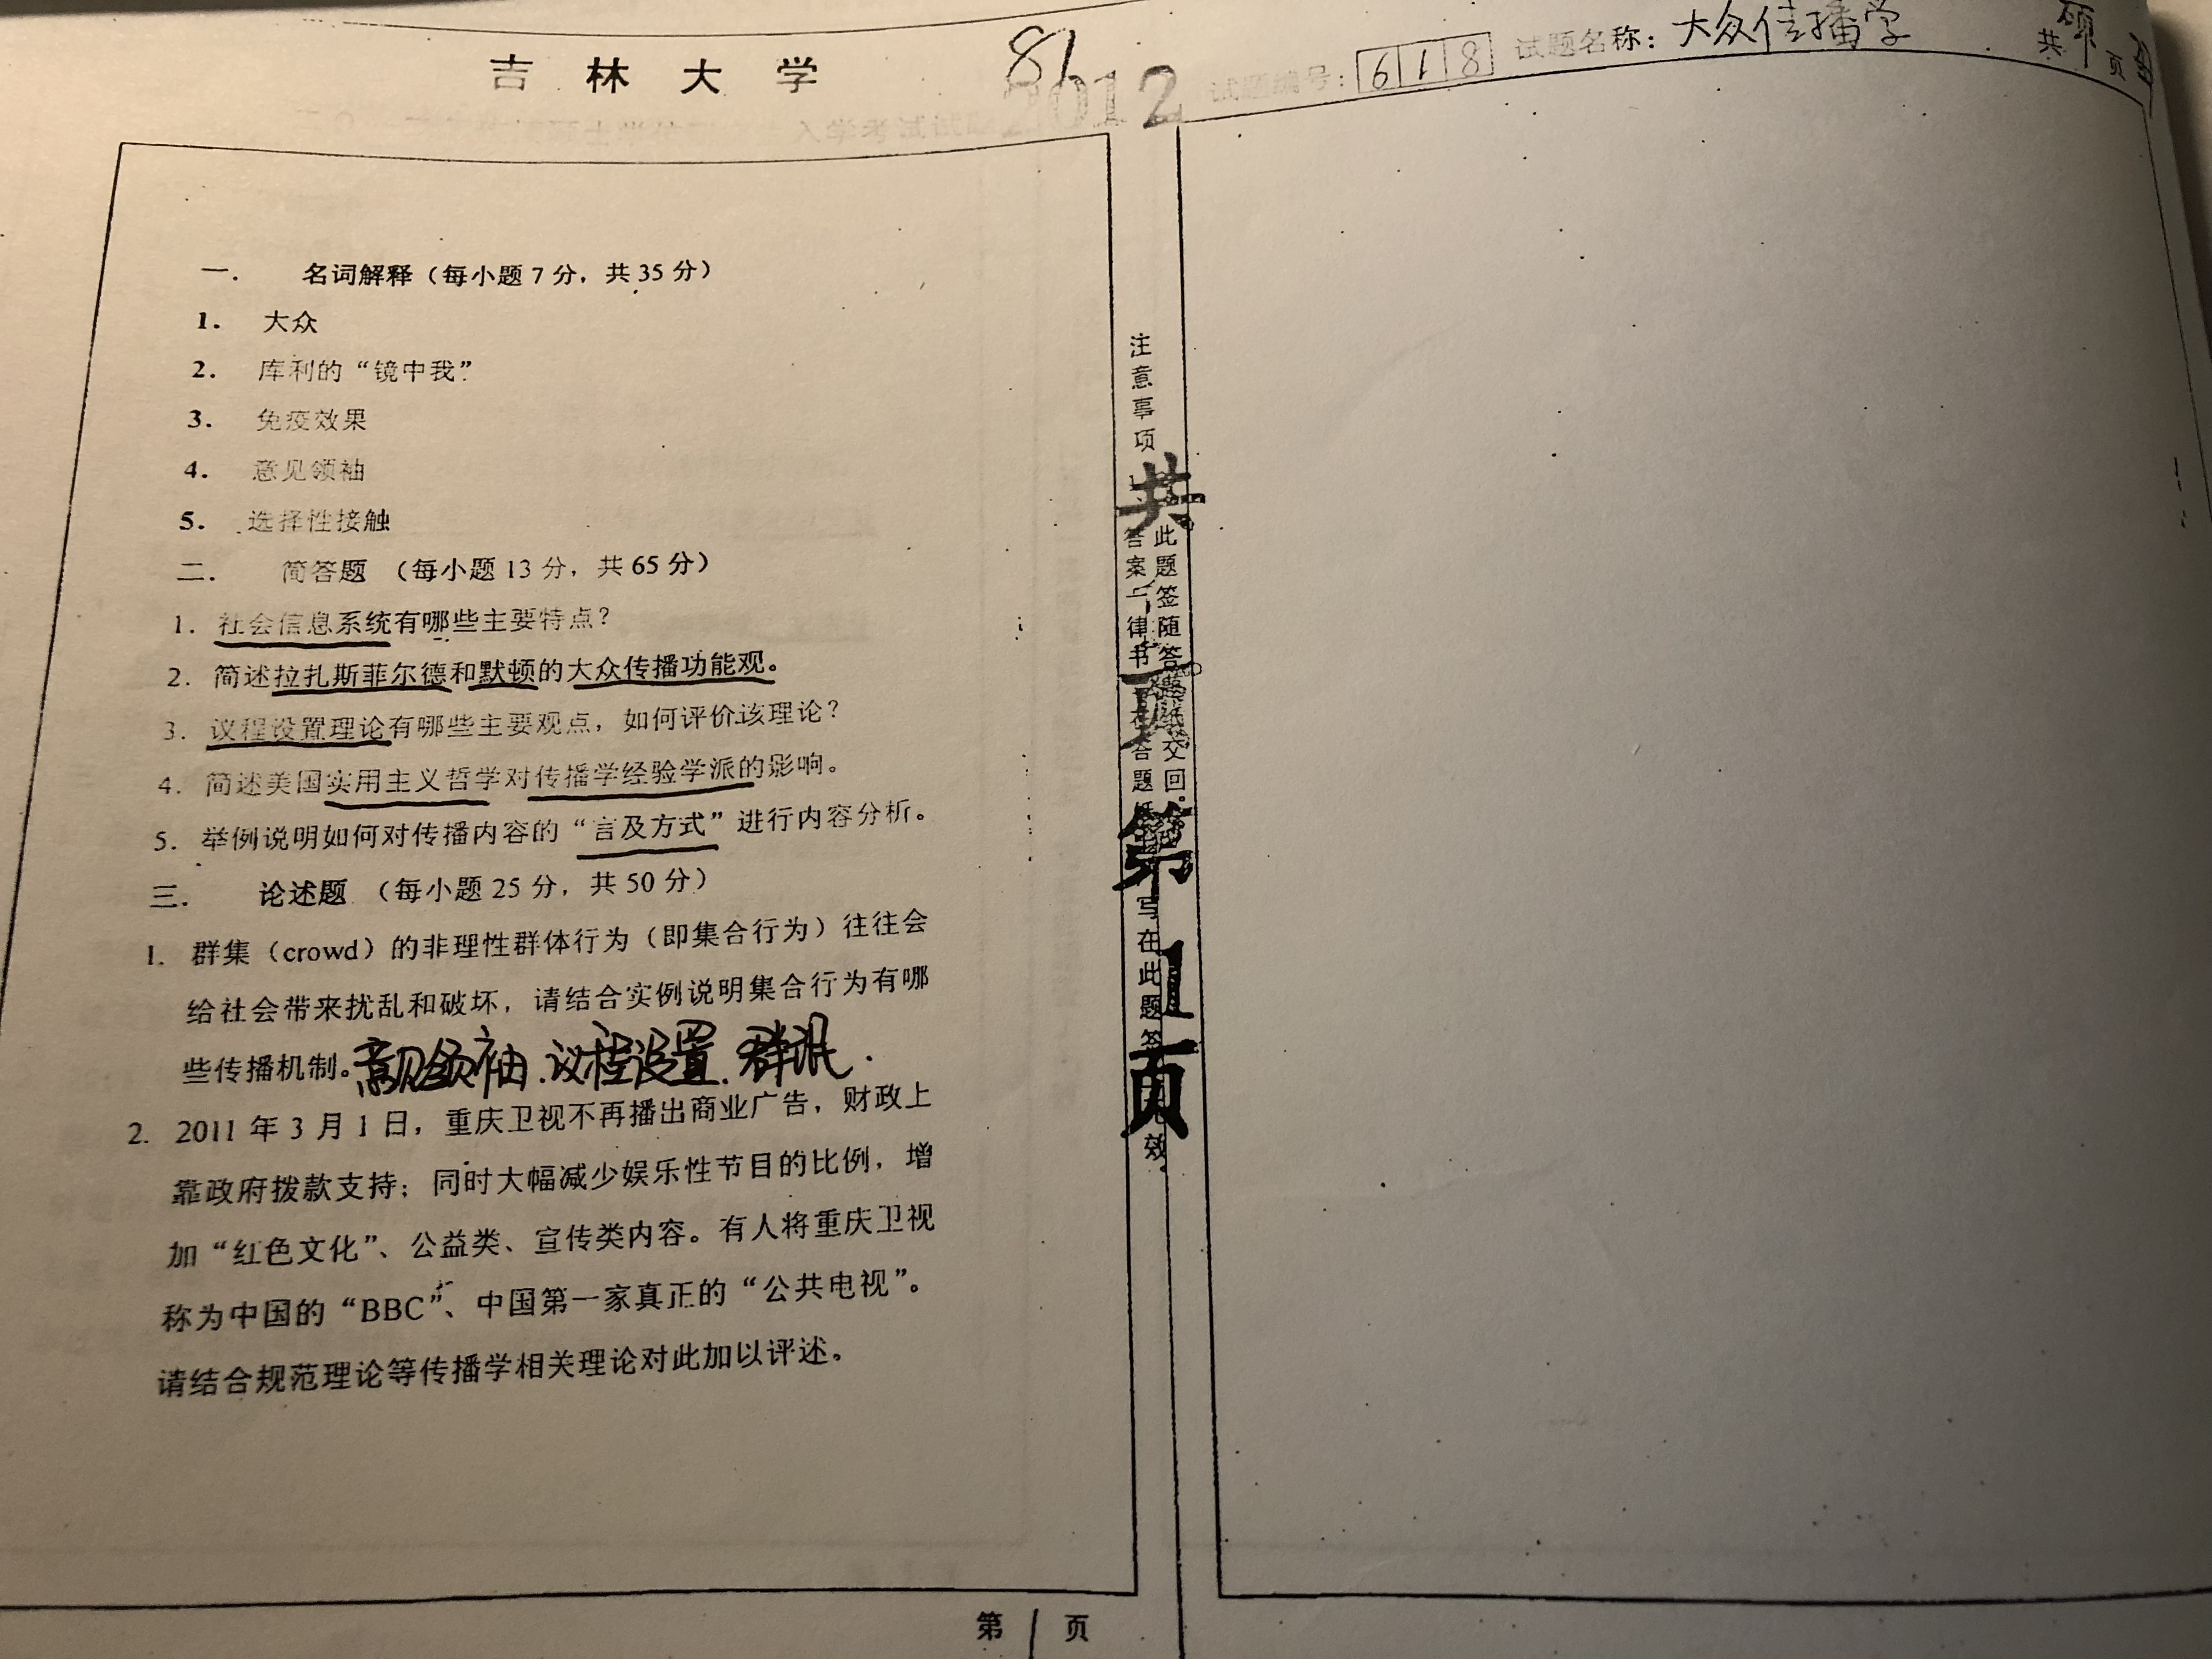 吉林大学
2012
试题编号：618 试题名称：大众传播学
共 页
一． 名词解释（每小题7分，共35分）
1． 大众
2． 库利的“镜中我”
3． 免疫效果
4． 意见领袖
5． 选择性接触
二． 简答题（每小题13分，共65分）
1．社会信息系统有哪些主要特点？
2．简述拉扎斯菲尔德和默顿的大众传播功能观。
3．议程设置理论有哪些主要观点，如何评价该理论？
4．简述美国实用主义哲学对传播学经验学派的影响。
5．举例说明如何对传播内容的“言及方式”进行内容分析。
三． 论述题（每小题25分，共50分）
1. 群集（crowd）的非理性群体行为（即集合行为）往往会
给社会带来扰乱和破坏，请结合实例说明集合行为有哪
些传播机制。意见领袖．议程设置．群
2. 2011年3月1日，重庆卫视不再播出商业广告，财政上
靠政府拨款支持；同时大幅减少娱乐性节目的比例，增
加“红色文化”、公益类、宣传类内容。有人将重庆卫视
称为中国的“BBC”、中国第一家真正的“公共电视”。
请结合规范理论等传播学相关理论对此加以评述。
注意事项
此题签随答题纸交回。
答案一律书写在答题纸上，写在此题签上无效。
共1页 第1页
第1页